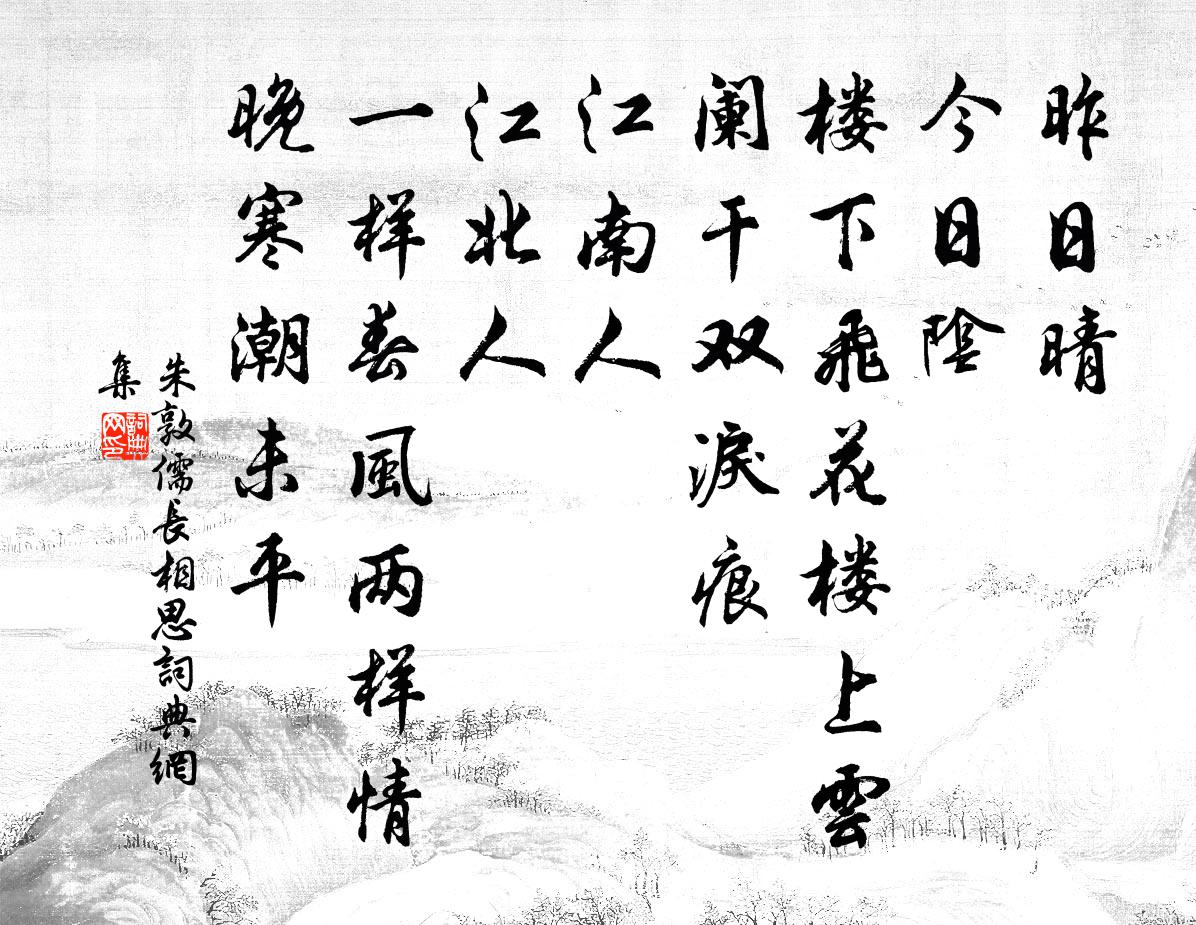 昨日晴
今日陰
楼下飛花楼上雲
阑干双淚痕
江南人
江北人
一样春風两样情
晚寒潮未平
朱敦儒長相思詞典網
集
詞典
网印